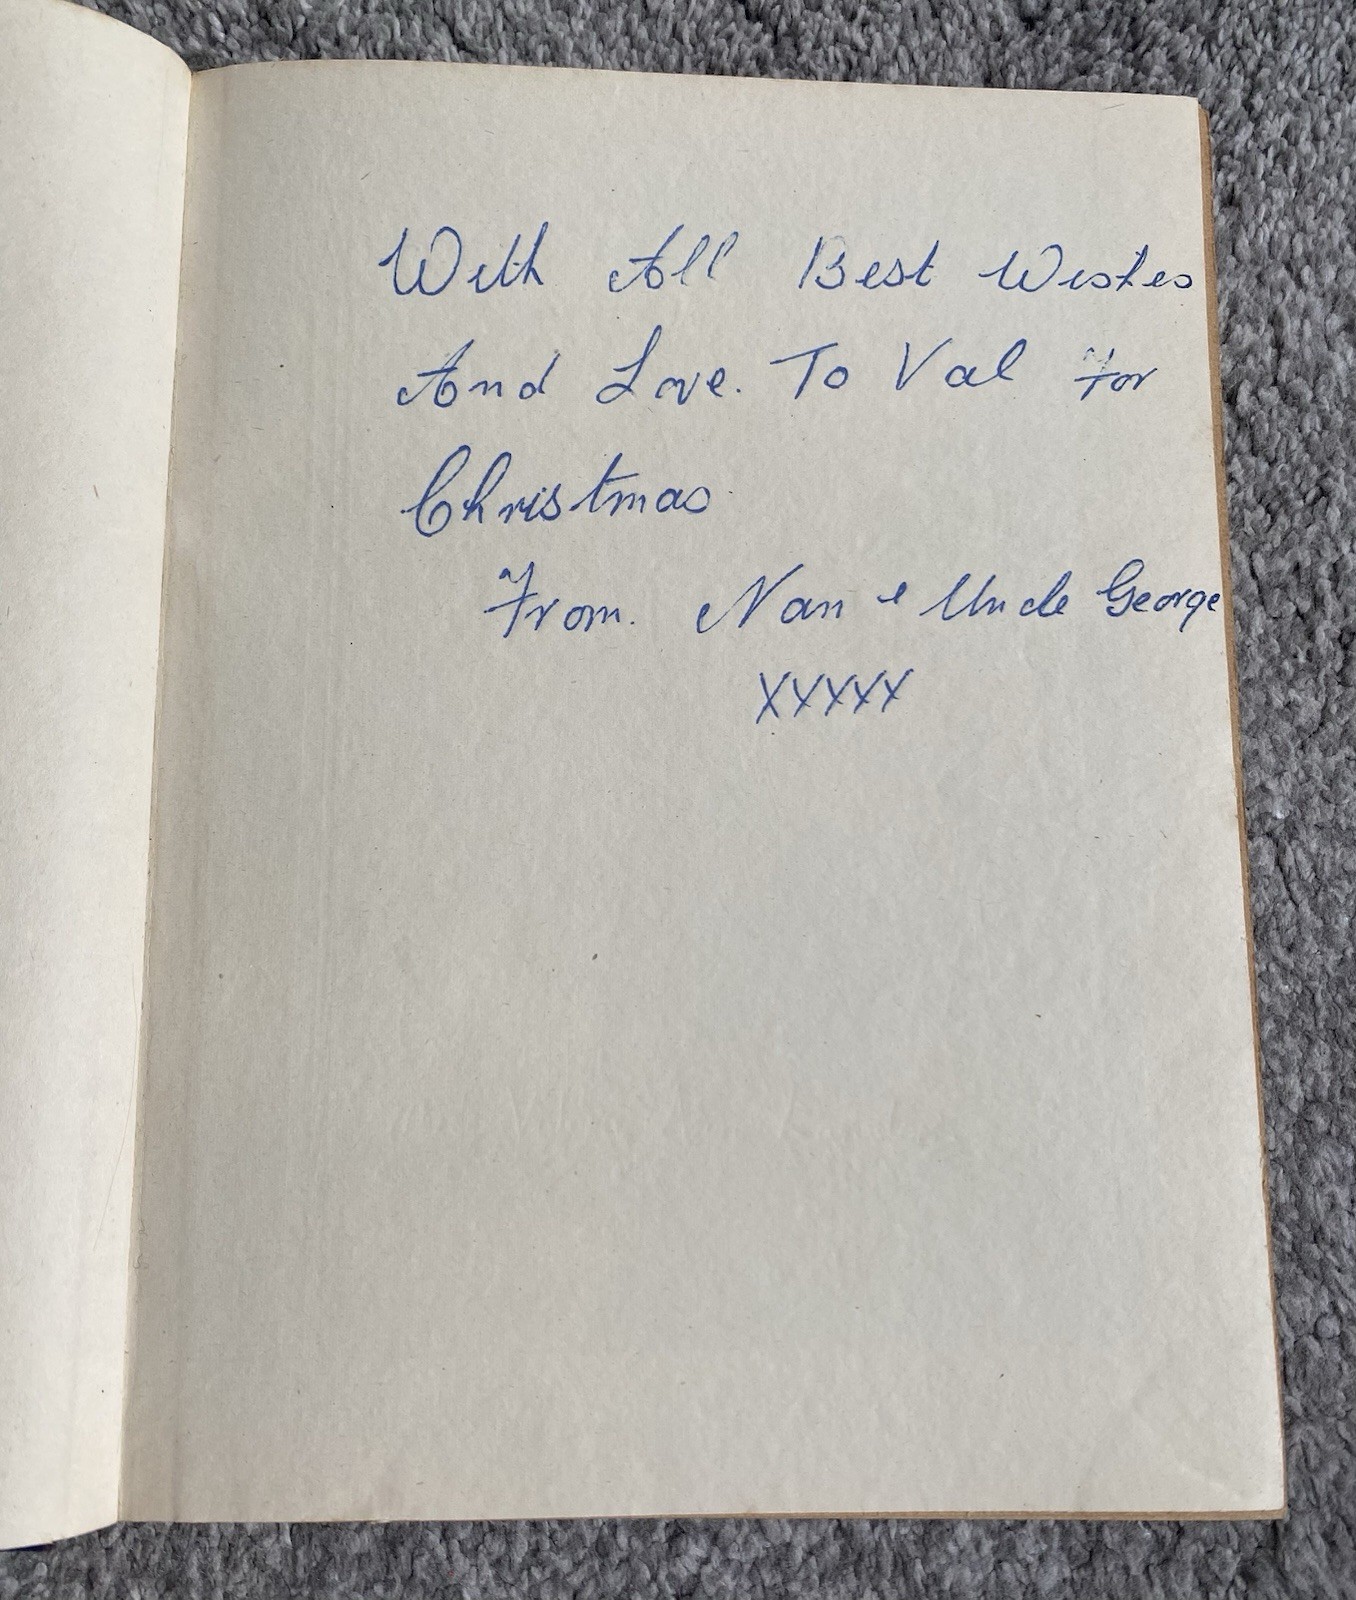 With All Best Wishes
And Love. To Val For
Christmas
From. Nan & Uncle George
XXXXX